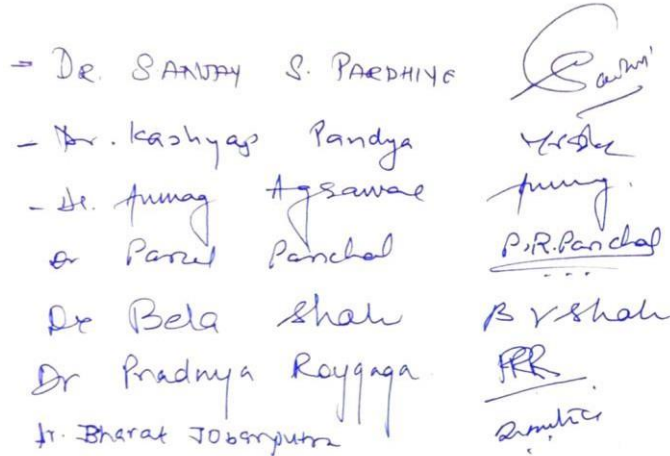 - DR. SANJAY S. PARDHIYE
- Dr. Kashyap Pandya
- Dr. Anurag Agrawal
Dr Parul Panchal P.R.Panchal
Dr Bela Shah B V Shah
Dr Pradnya
Dr. Bharat Jobanputra